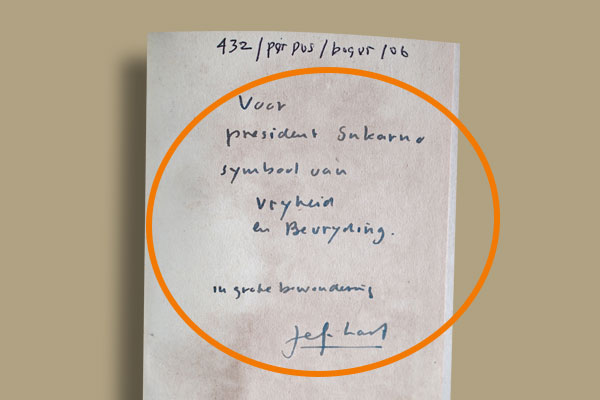 432/perpus/bogor/06
Voor
president Sukarno
symbool van
vryheid
en Bevryding.
in grote bewondering
Jef Last